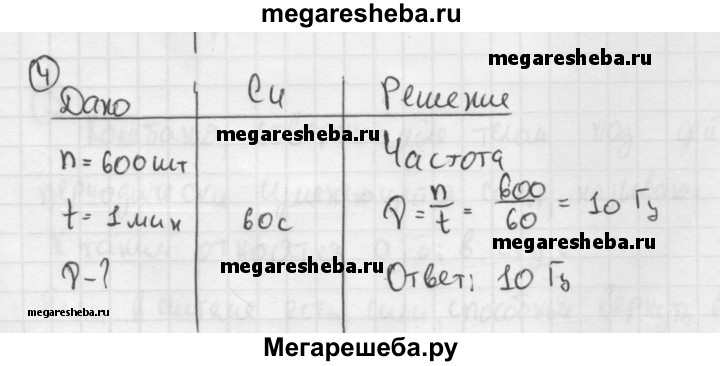 megaresheba.ru
megaresheba.ru
4
Дано СИ Решение
megaresheba.ru
n = 600 шт Частота
t = 1 мин 60 с ν = n/t = 600/60 = 10 Гц
megaresheba.ru
ν - ? megaresheba.ru Ответ: 10 Гц
megaresheba.ru
Мегарешеба.ру